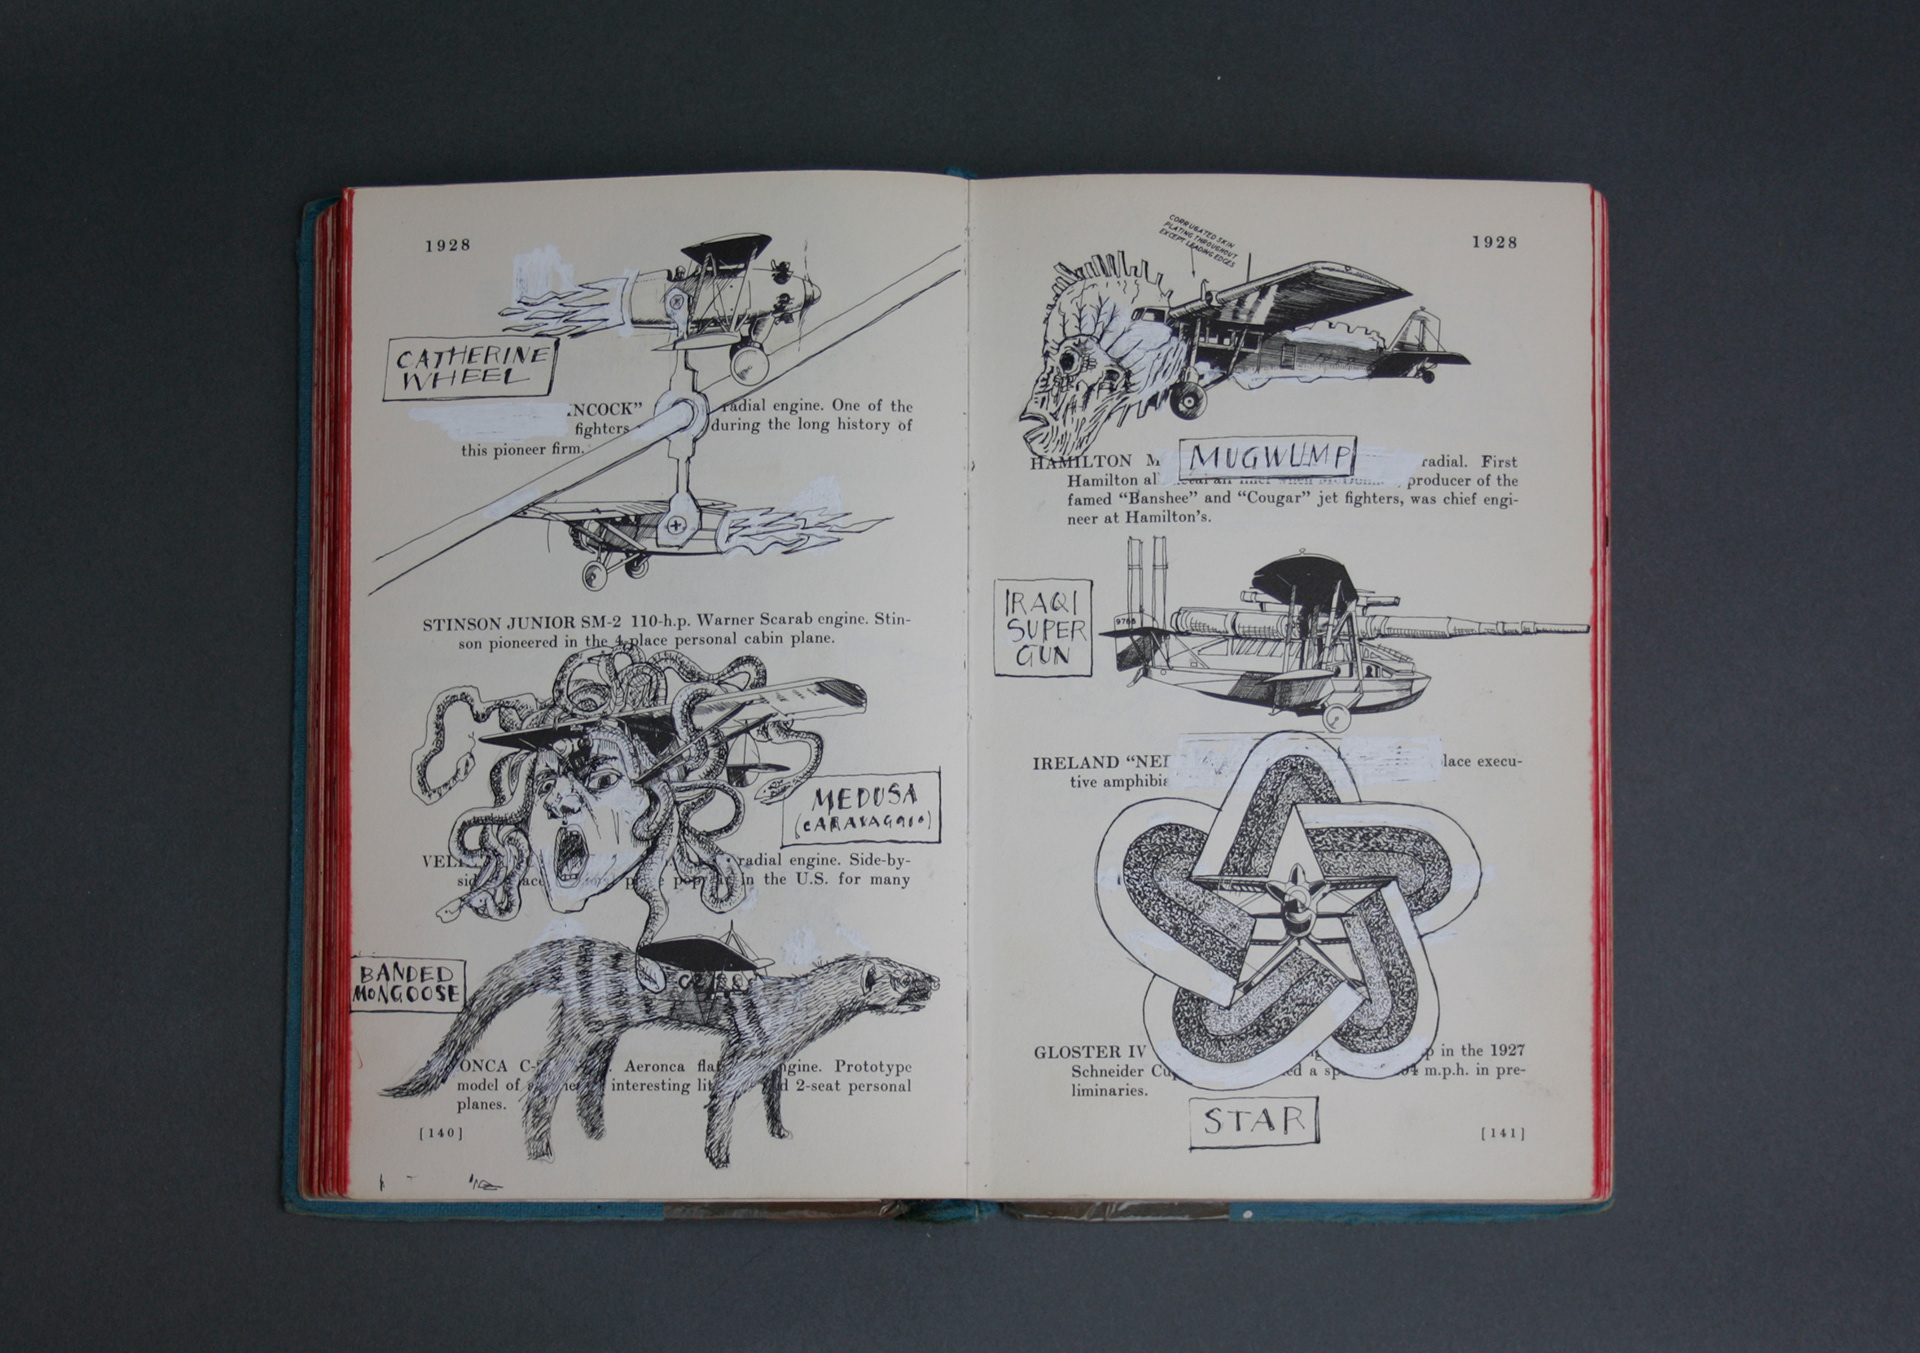 1928
CATHERINE
WHEEL
NCOCK" radial engine. One of the
fighters during the long history of
this pioneer firm.
STINSON JUNIOR SM-2 110-h.p. Warner Scarab engine. Stin-
son pioneered in the 4-place personal cabin plane.
MEDUSA
(CARAVAGGIO)
radial engine. Side-by-
in the U.S. for many
BANDED
MONGOOSE
ONCA C- Aeronca engine. Prototype
model of interesting 2-seat personal
planes.
[140]
1928
CORRUGATED SKIN
PLATING THROUGHOUT
EXCEPT LEADING EDGES
MUGWUMP
HAMILTON M radial. First
Hamilton producer of the
famed "Banshee" and "Cougar" jet fighters, was chief engi-
neer at Hamilton's.
IRAQI
SUPER
GUN
9768
IRELAND "NE place execu-
tive amphibia
GLOSTER IV in the 1927
Schneider Cu m.p.h. in pre-
liminaries.
STAR
[141]